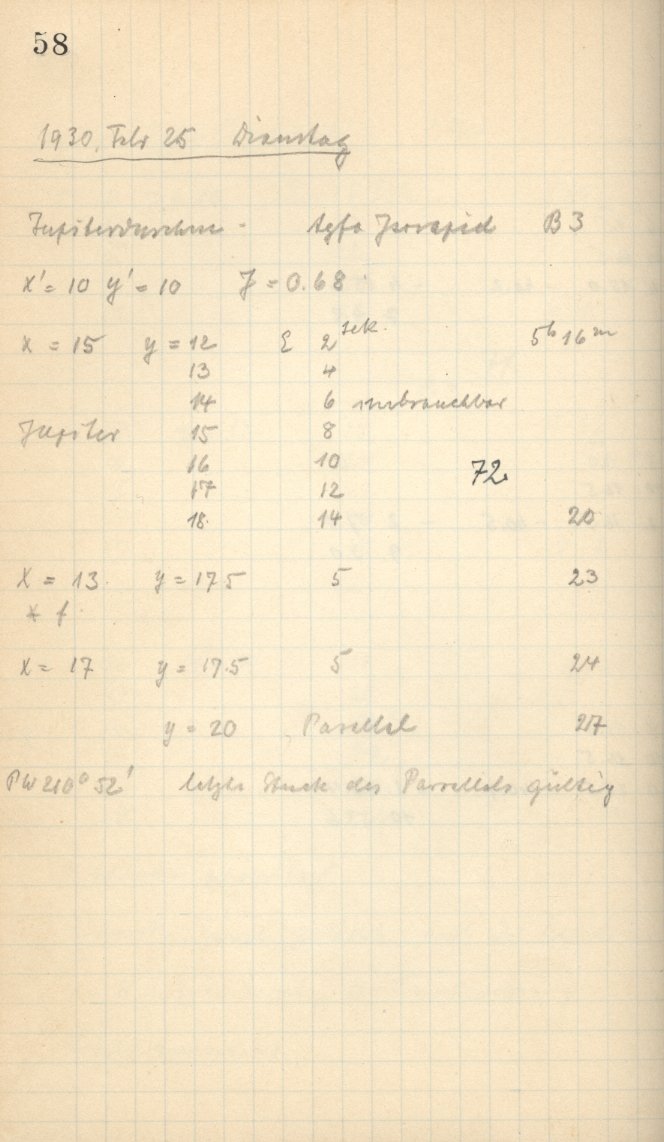 58
1930, Febr 25 Dienstag
Jupiterdurchm - Agfa Isorapid B3
x' = 10 y' = 10 J = 0.68
x = 15 y = 12 E 2 sek. 5h 16m
13 4
14 6 unbrauchbar
Jupiter 15 8
16 10
72.
17 12
18. 14 20
x = 13 y = 17.5 5 23
* f
x = 17 y = 17.5 5 24
y = 20 Parallel 27
PW 210° 52' letzte Stück des Parallels gültig